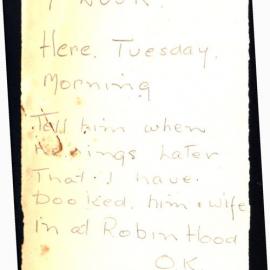 Here. Tuesday.
Morning
Tell him when
he rings Later
That I have
Booked him & wife
in at Robin Hood
OK